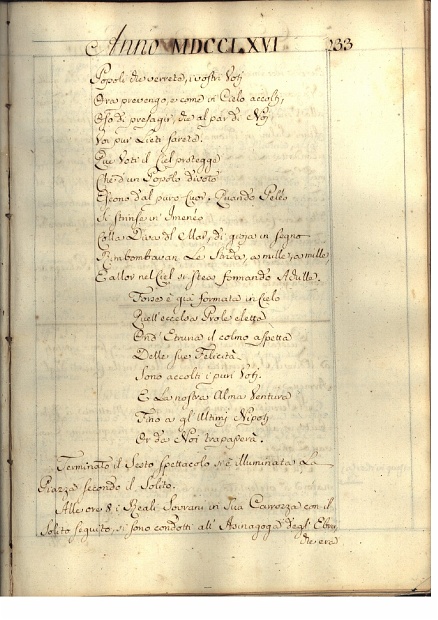 Anno MDCCLXVI 233
Popoli che verrete, i vostri Voti
Ora prevengo, e come in Cielo accolti,
Oso di presagir, che al par di Noi
Voi pur Lieti sarete.
Que Voti il Ciel protegge
Che d'un Popolo divoto
Escono dal puro Cuor. Quando Peleo
Si strinse in Imeneo
Colla Diva del Mar, di gioja in segno
Rimbombavan Le Sarda, a mille, a mille
E allor nel Ciel si stea formando Achille.
Forse è già formata in Cielo
Quell'eccelsa Prole eletta
Ond' Etruria il colmo aspetta
Delle sue Felicità.
Sono accolti i puri Voti
E La nostra Alma Ventura
Fino a gl'Ultimi Nipoti
Or da Noi trapasserà.
Terminato il Sesto spettacolo si è illuminata La
Piazza secondo il Solito.
Alle ore 8 i Reali Sovrani in Sua Carrozza con il
Solito seguito, si sono condotti all' Asinagoga degl' Ebrei
che era